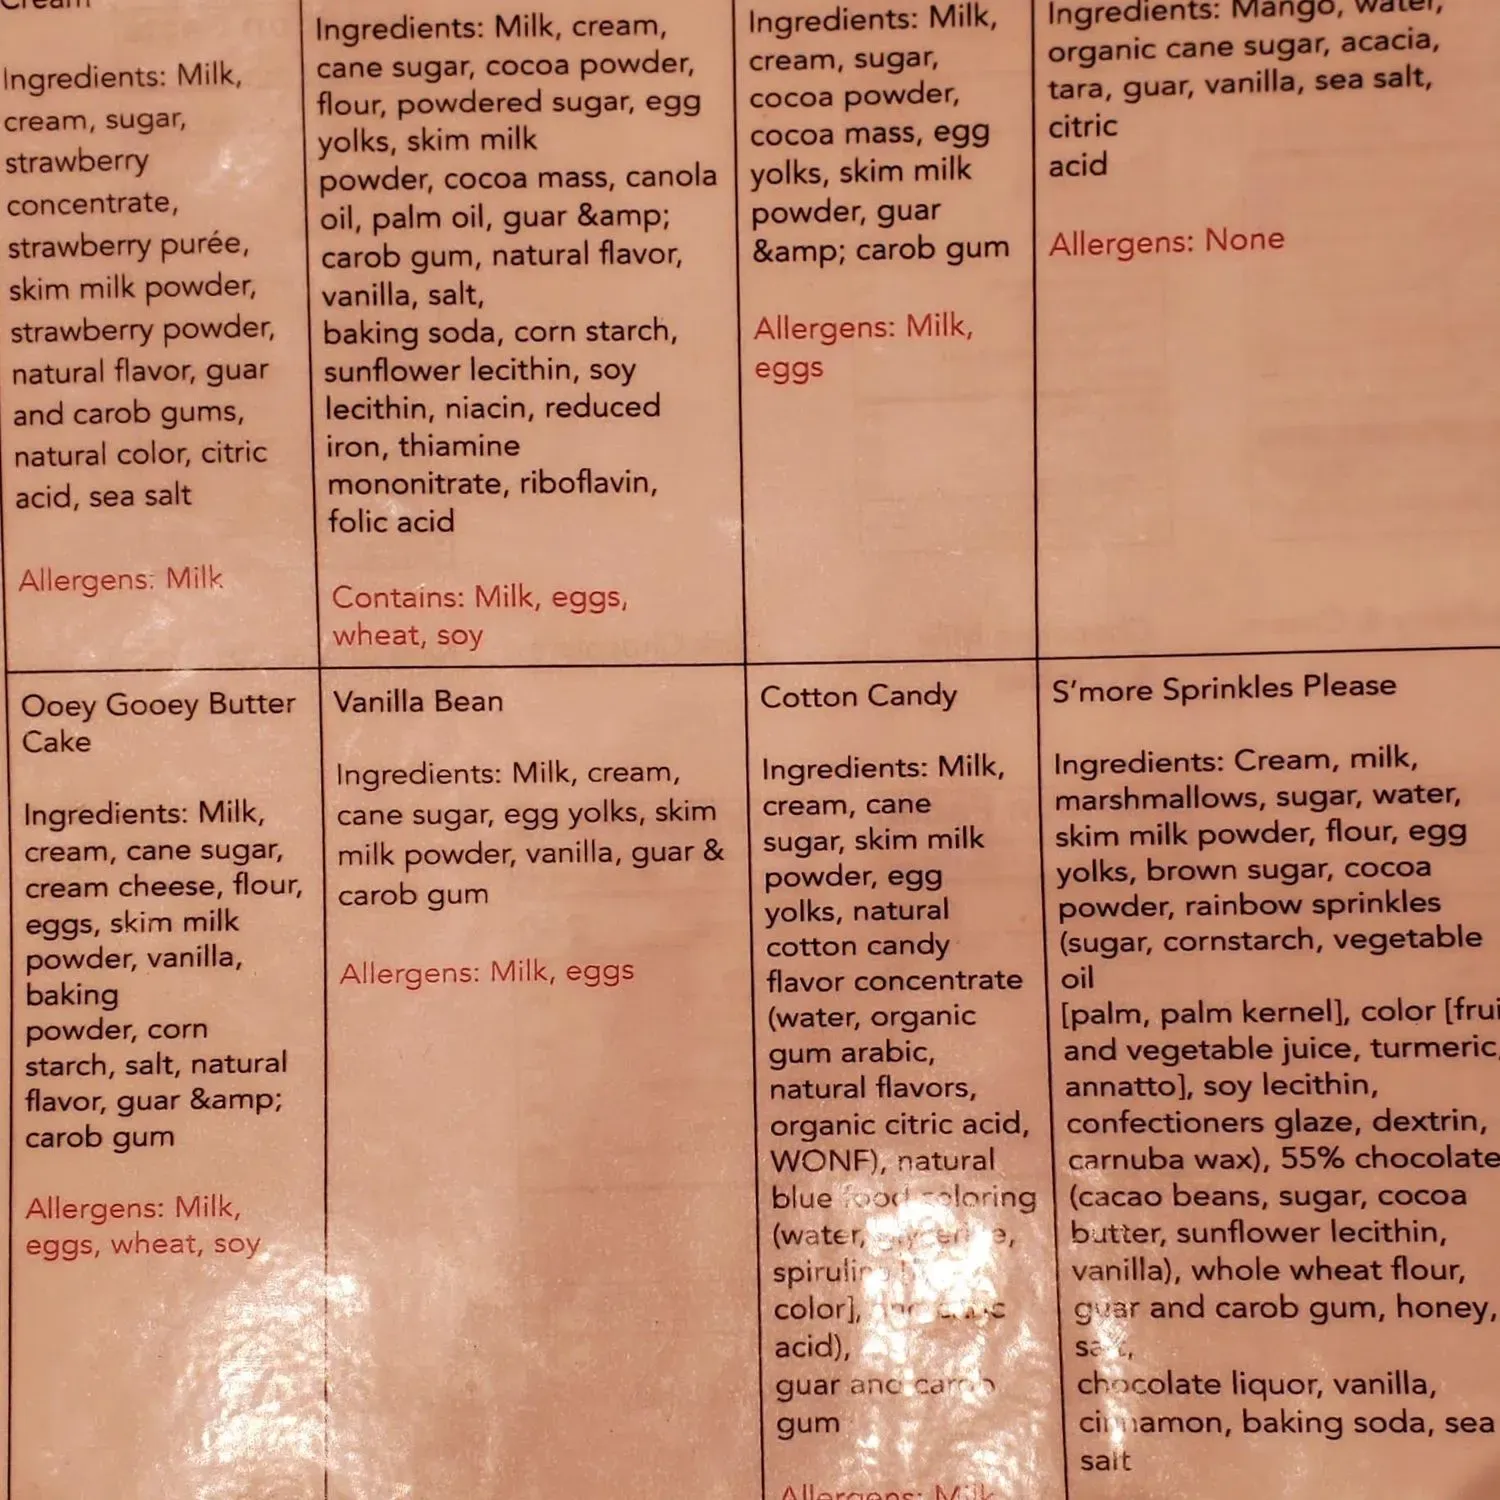 Cream
Ingredients: Milk,
cream, sugar,
strawberry
concentrate,
strawberry purée,
skim milk powder,
strawberry powder,
natural flavor, guar
and carob gums,
natural color, citric
acid, sea salt
Allergens: Milk
Ingredients: Milk, cream,
cane sugar, cocoa powder,
flour, powdered sugar, egg
yolks, skim milk
powder, cocoa mass, canola
oil, palm oil, guar &amp;
carob gum, natural flavor,
vanilla, salt,
baking soda, corn starch,
sunflower lecithin, soy
lecithin, niacin, reduced
iron, thiamine
mononitrate, riboflavin,
folic acid
Contains: Milk, eggs,
wheat, soy
Ingredients: Milk,
cream, sugar,
cocoa powder,
cocoa mass, egg
yolks, skim milk
powder, guar
&amp; carob gum
Allergens: Milk,
eggs
Ingredients: Mango, water,
organic cane sugar, acacia,
tara, guar, vanilla, sea salt,
citric
acid
Allergens: None
Ooey Gooey Butter
Cake
Ingredients: Milk,
cream, cane sugar,
cream cheese, flour,
eggs, skim milk
powder, vanilla,
baking
powder, corn
starch, salt, natural
flavor, guar &amp;
carob gum
Allergens: Milk,
eggs, wheat, soy
Vanilla Bean
Ingredients: Milk, cream,
cane sugar, egg yolks, skim
milk powder, vanilla, guar &
carob gum
Allergens: Milk, eggs
Cotton Candy
Ingredients: Milk,
cream, cane
sugar, skim milk
powder, egg
yolks, natural
cotton candy
flavor concentrate
(water, organic
gum arabic,
natural flavors,
organic citric acid,
WONF), natural
blue food coloring
(water,
color],
acid),
guar and carob
gum
Allergens: Milk
S'more Sprinkles Please
Ingredients: Cream, milk,
marshmallows, sugar, water,
skim milk powder, flour, egg
yolks, brown sugar, cocoa
powder, rainbow sprinkles
(sugar, cornstarch, vegetable
oil
[palm, palm kernel], color [frui
and vegetable juice, turmeric,
annatto], soy lecithin,
confectioners glaze, dextrin,
carnuba wax), 55% chocolate
(cacao beans, sugar, cocoa
butter, sunflower lecithin,
vanilla), whole wheat flour,
guar and carob gum, honey,
salt,
chocolate liquor, vanilla,
cinnamon, baking soda, sea
salt